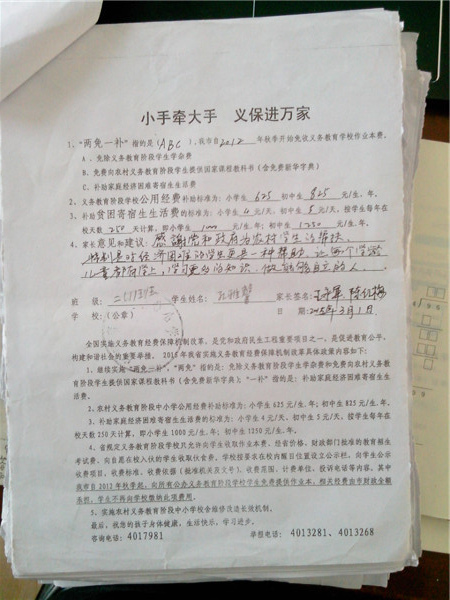 小手牵大手 义保进万家
1、"两免一补"指的是（ABC），我市自2012年秋季开始免收义务教育学校作业本费。
A、免除义务教育阶段学生学杂费
B、免费向农村义务教育阶段学生提供国家课程教科书（含免费新华字典）
C、补助家庭经济困难寄宿生生活费
2、义务教育阶段学校公用经费补助标准为：小学生625元/生.年，初中生825元/生.年。
3、补助贫困寄宿生生活费的标准为：小学生4元/天，初中生5元/天，按学生每年在
校天数250天计算，即小学生1000元/生.年；初中生1250元/生.年。
4、家长意见和建议：感谢党和政府为农村学生的
特别是对经济困难的学生更是一种帮助，让每个学龄
儿童都能上学，学习更多的知识，做能够自立的人
班级： 学生姓名： 家长签名：
学校：（公章） 日期：年3月1日
全国实施义务教育经费保障机制改革，是党和政府民生工程重要项目之一，是促进教育公平、
构建和谐社会的重要举措。2013年我省实施义务教育经费保障机制改革具体政策内容如下：
1、继续实施"两免一补"。"两免"指的是：免除义务教育阶段学生学杂费和免费向农村义务教
育阶段学生提供国家课程教科书（含免费新华字典）；"一补"指的是：补助家庭经济困难寄宿生生
活费。
2、农村义务教育阶段中小学公用经费补助标准为：小学生625元/生.年；初中生825元/生.年。
3、补助家庭经济困难寄宿生生活费的标准为：小学生4元/天，初中生5元/天，按学生每年在
校天数250天计算，即小学生1000元/生.年；初中生1250元/生.年。
4、省规定义务教育阶段学校只允许向学生收取作业本费、经省价格、财政部门批准的教育部生
考试费、向自愿在校入伙的学生收取伙食费。学校按要求在校内醒目位置设立公示栏，向学生公示
收费项目、收费标准、收费依据（批准机关及文号）、收费范围、计费单位、投诉电话等内容。其中
我市自2012年秋季起，向所有公办义务教育阶段学校学生免费提供作业本，相关经费由市财政全额
，学生不再向学校缴纳此项费用。
5、实施农村义务教育阶段中小学校舍维修改造长效机制。
最后，祝您的孩子身体健康，生活快乐，学习进步。
咨询电话：4017981 举报电话：4013281、4013268